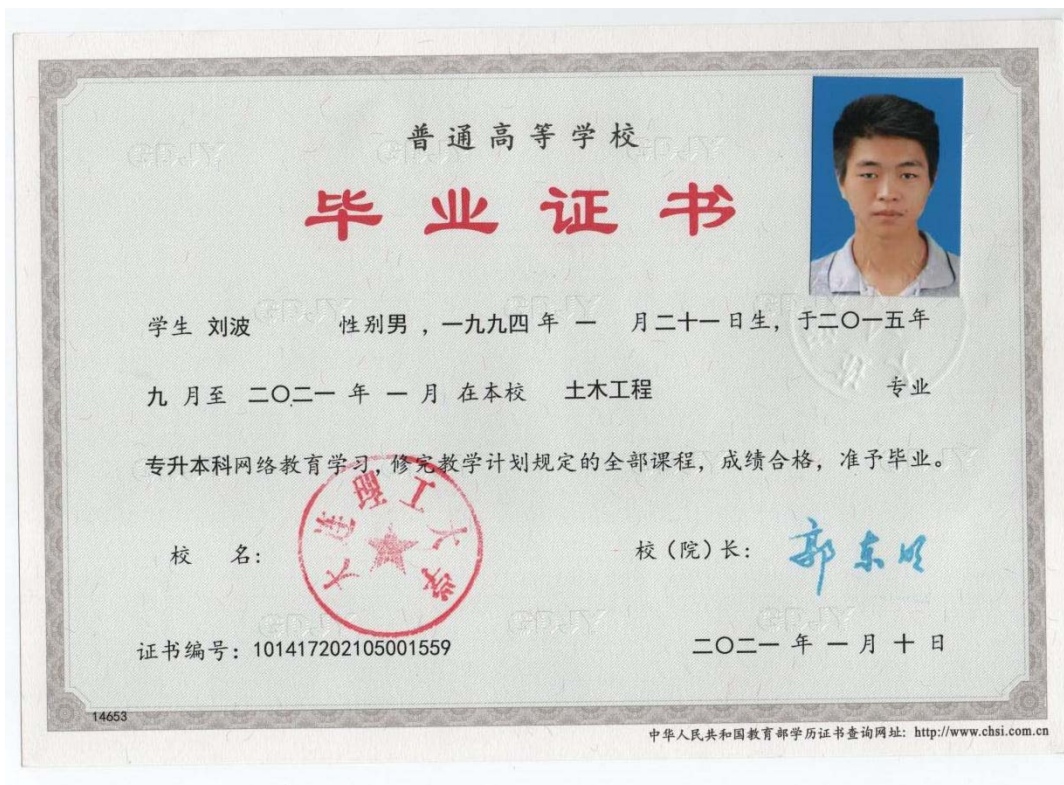 普通高等学校
毕业证书
学生 刘波 性别男，一九九四 年 一 月二十一日生，于二〇一五年
九 月至 二〇二一 年 一 月 在本校 土木工程 专业
专升本科网络教育学习，修完教学计划规定的全部课程，成绩合格，准予毕业。
校 名：
大连理工大学
校（院）长：
郭东明
证书编号：101417202105001559
二〇二一 年 一 月 十 日
14653
中华人民共和国教育部学历证书查询网址：http://www.chsi.com.cn